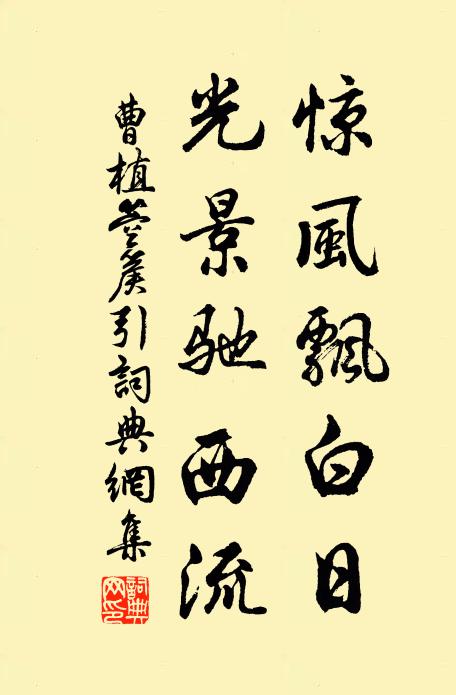 惊風飘白日
光景驰西流
曹植箜篌引詞典網集
詞典網印